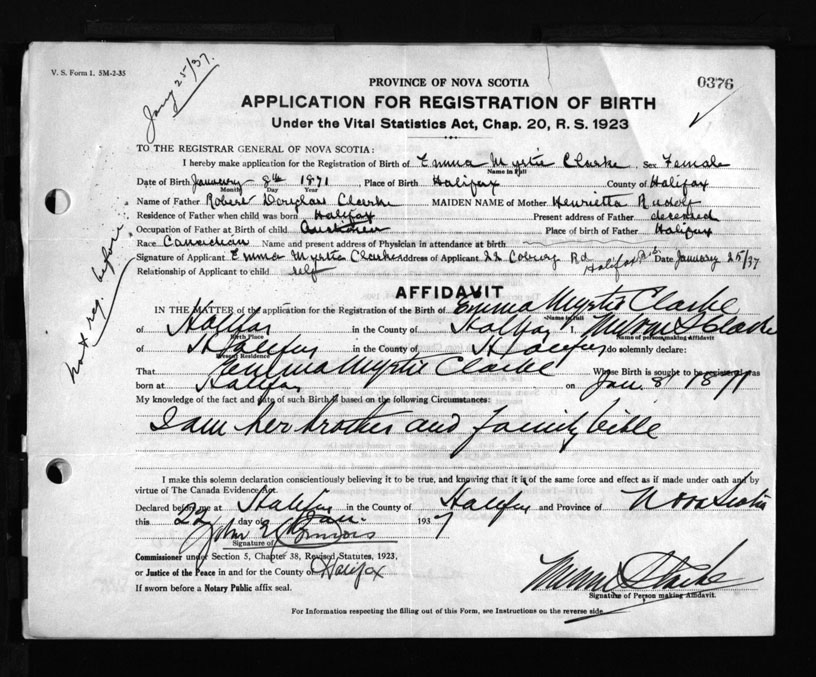 V. S. Form 1. 5M-2-35
Jany 25/37.
0376
PROVINCE OF NOVA SCOTIA
APPLICATION FOR REGISTRATION OF BIRTH
Under the Vital Statistics Act, Chap. 20, R. S. 1923
TO THE REGISTRAR GENERAL OF NOVA SCOTIA:
I hereby make application for the Registration of Birth of Emma Myrtie Clarke Sex Female
Name in Full
Date of Birth January 8th 1871 Place of Birth Halifax County of Halifax
Month Day Year
Name of Father Robert Douglas Clarke MAIDEN NAME of Mother Henrietta Rudolf
Residence of Father when child was born Halifax Present address of Father deceased
Occupation of Father at Birth of child Place of birth of Father Halifax
Race Canadian Name and present address of Physician in attendance at birth
Signature of Applicant Emma Myrtie Clarke Address of Applicant 22 Coburg Rd Halifax N.S. Date January 25/37
Relationship of Applicant to child self
not reg. before
AFFIDAVIT
IN THE MATTER of the application for the Registration of the Birth of Emma Myrtie Clarke
Name in Full
of Halifax in the County of Halifax I, Clarke
Birth Place Name of person making Affidavit
of Halifax in the County of Halifax do solemnly declare:
Present Residence
That Emma Myrtie Clarke Whose Birth is sought to be registered was
born at Halifax on Jan. 8/1871
My knowledge of the fact and date of such Birth is based on the following Circumstances:
I am her brother and family bible
I make this solemn declaration conscientiously believing it to be true, and knowing that it is of the same force and effect as if made under oath and by
virtue of The Canada Evidence Act.
Declared before me at Halifax in the County of Halifax and Province of Nova Scotia
this 22 day of Jan. 1937
John
Signature of
Commissioner under Section 5, Chapter 38, Revised Statutes, 1923,
or Justice of the Peace in and for the County of Halifax
If sworn before a Notary Public affix seal.
Clarke
Signature of Person making Affidavit.
For Information respecting the filling out of this Form, see Instructions on the reverse side.